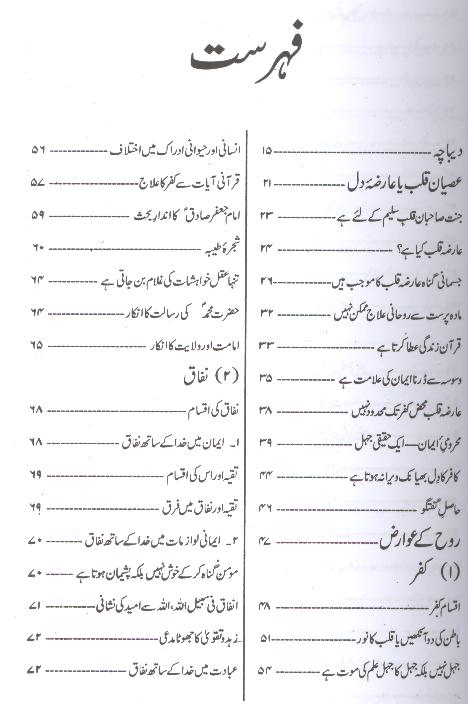 فہرست
دیباچہ ---------------- ۱۵
عصیان قلب یا عارضۂ دل ---------------- ۲۱
جنت صاحبان قلب سلیم کے لئے ہے ---------------- ۲۳
عارضہ قلب کیا ہے؟ ---------------- ۲۴
جسمانی گناہ عارضہ قلب کا موجب ہیں ---------------- ۲۶
مادہ پرست سے روحانی علاج ممکن نہیں ---------------- ۳۲
قرآن زندگی عطا کرتا ہے ---------------- ۳۳
وسوسہ سے ڈرنا ایمان کی علامت ہے ---------------- ۳۵
عارضہ قلب محض کفر تک محدود نہیں ---------------- ۳۸
محرومیٔ ایمان—ایک حقیقی جہل ---------------- ۳۹
کافر کا دل بھیانک ویرانہ ہوتا ہے ---------------- ۴۴
حاصل گفتگو ---------------- ۴۶
روح کے عوارض ---------------- ۴۷
(۱) کفر
اقسام کفر ---------------- ۴۸
باطن کی دو آنکھیں یا قلب کا نور ---------------- ۵۱
جہل نہیں بلکہ جہل کا جہل علم کی موت ہے ---------------- ۵۴
انسانی اور حیوانی ادراک میں اختلاف ---------------- ۵۶
قرآنی آیات سے کفر کا علاج ---------------- ۵۷
امام جعفر صادقؑ کا انداز بحث ---------------- ۵۹
شجرۂ طیبہ ---------------- ۶۰
تنہا عقل خواہشات کی غلام بن جاتی ہے ---------------- ۶۴
حضرت محمدؐ کی رسالت کا انکار ---------------- ۶۴
امامت اور ولایت کا انکار ---------------- ۶۵
(۲) نفاق
نفاق کی اقسام ---------------- ۶۸
۱۔ ایمان میں خدا کے ساتھ نفاق ---------------- ۶۸
تقیہ اور اس کی اقسام ---------------- ۶۹
تقیہ اور نفاق میں فرق ---------------- ۶۹
۲۔ ایمانی لوازمات میں خدا کے ساتھ نفاق ---------------- ۷۰
مؤمن گناہ کر کے خوش نہیں بلکہ پشیمان ہوتا ہے ---------------- ۷۰
انفاق فی سبیل اللہ، اللہ سے امید کی نشانی ---------------- ۷۱
زہد و تقویٰ کا جھوٹا مدعی ---------------- ۷۲
عبادت میں خدا کے ساتھ نفاق ---------------- ۷۲